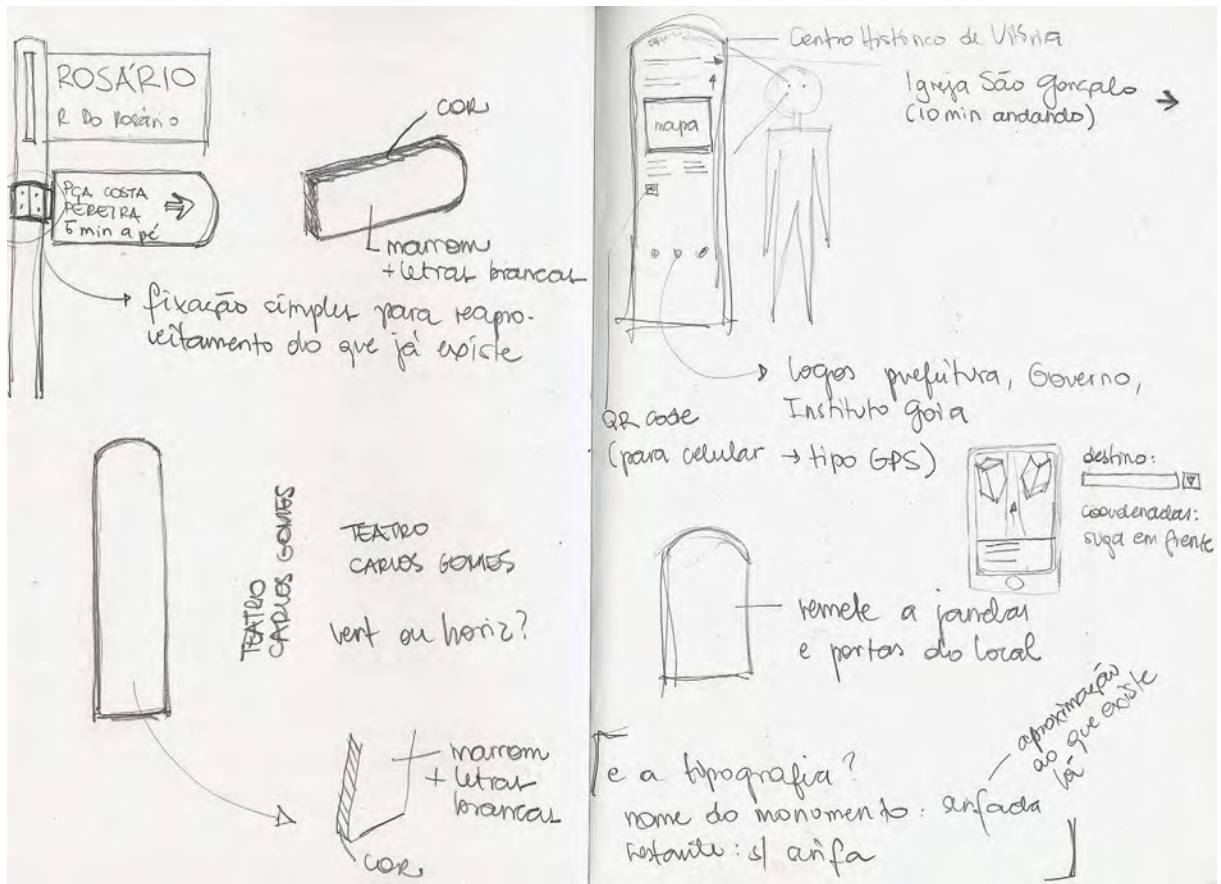 ROSÁRIO
R Do Rosário
PÇA COSTA
PEREIRA
5 min a pé
COR
marrom
+ letras brancas
fixação simples para reapro-
veitamento do que já existe
TEATRO
CARLOS GOMES
TEATRO
CARLOS GOMES
vert ou horiz?
marrom
+ letras
brancas
COR
Centro Histórico de Vitória
Igreja São Gonçalo
(10 min andando)
mapa
logos prefeitura, Governo,
Instituto Goia
QR code
(para celular → tipo GPS)
destino:
coordenadas:
siga em frente
remete a janelas
e portas do local
e a tipografia?
nome do monumento: serifada
restante: s/ serifa
aproximação
ao que existe
lá